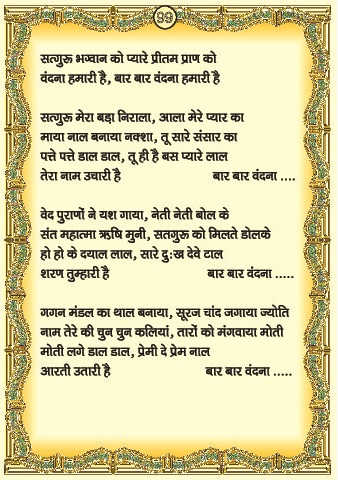 99
सत्गुरू भगवान को प्यारे प्रीतम प्राण को
वंदना हमारी है, बार बार वंदना हमारी है
सत्गुरू मेरा बड़ा निराला, आला मेरे प्यार का
माया नाल बनाया नक्शा, तू सारे संसार का
पत्ते पत्ते डाल डाल, तू ही है बस प्यारे लाल
तेरा नाम उचारी है बार बार वंदना ....
वेद पुराणों ने यश गाया, नेती नेती बोल के
संत महात्मा ऋषि मुनी, सतगुरू को मिलते डोलके
हो हो के दयाल लाल, सारे दुःख देवे टाल
शरण तुम्हारी है बार बार वंदना .....
गगन मंडल का थाल बनाया, सूरज चांद जगाया ज्योति
नाम तेरे की चुन चुन कलियां, तारों को मंगवाया मोती
मोती लगे डाल डाल, प्रेमी दे प्रेम नाल
आरती उतारी है बार बार वंदना .....